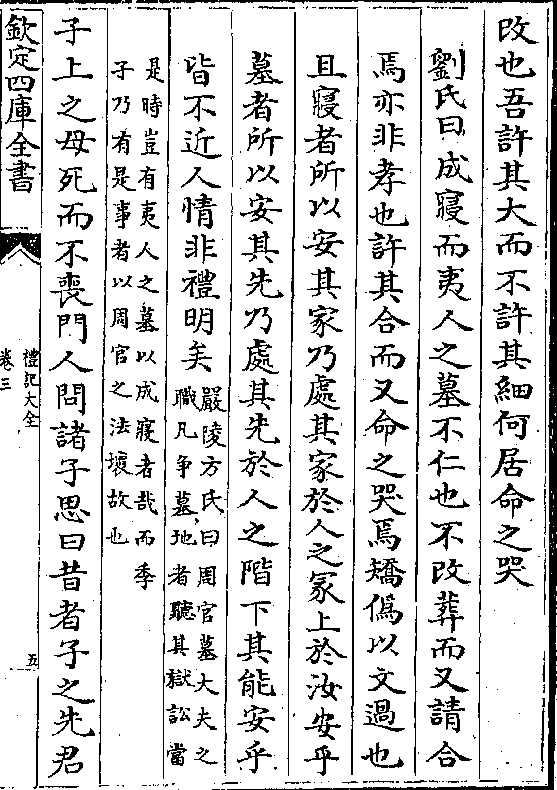 改也吾許其大而不許其細何居命之哭
劉氏曰成寢而夷人之墓不仁也不改葬而又請合
焉亦非孝也許其合而又命之哭焉矯僞以文過也
且寢者所以安其家乃處其家於人之冢上於汝安乎
墓者所以安其先乃處其先於人之階下其能安乎
皆不近人情非禮明矣
嚴陵方氏曰周官墓大夫之
職凡爭墓地者聽其獄訟當
是時豈有夷人之墓以成寢者哉而季
子乃有是事者以周官之法壞故也
子上之母死而不喪門人問諸子思曰昔者子之先君
欽定四庫全書
禮記大全
卷三
五